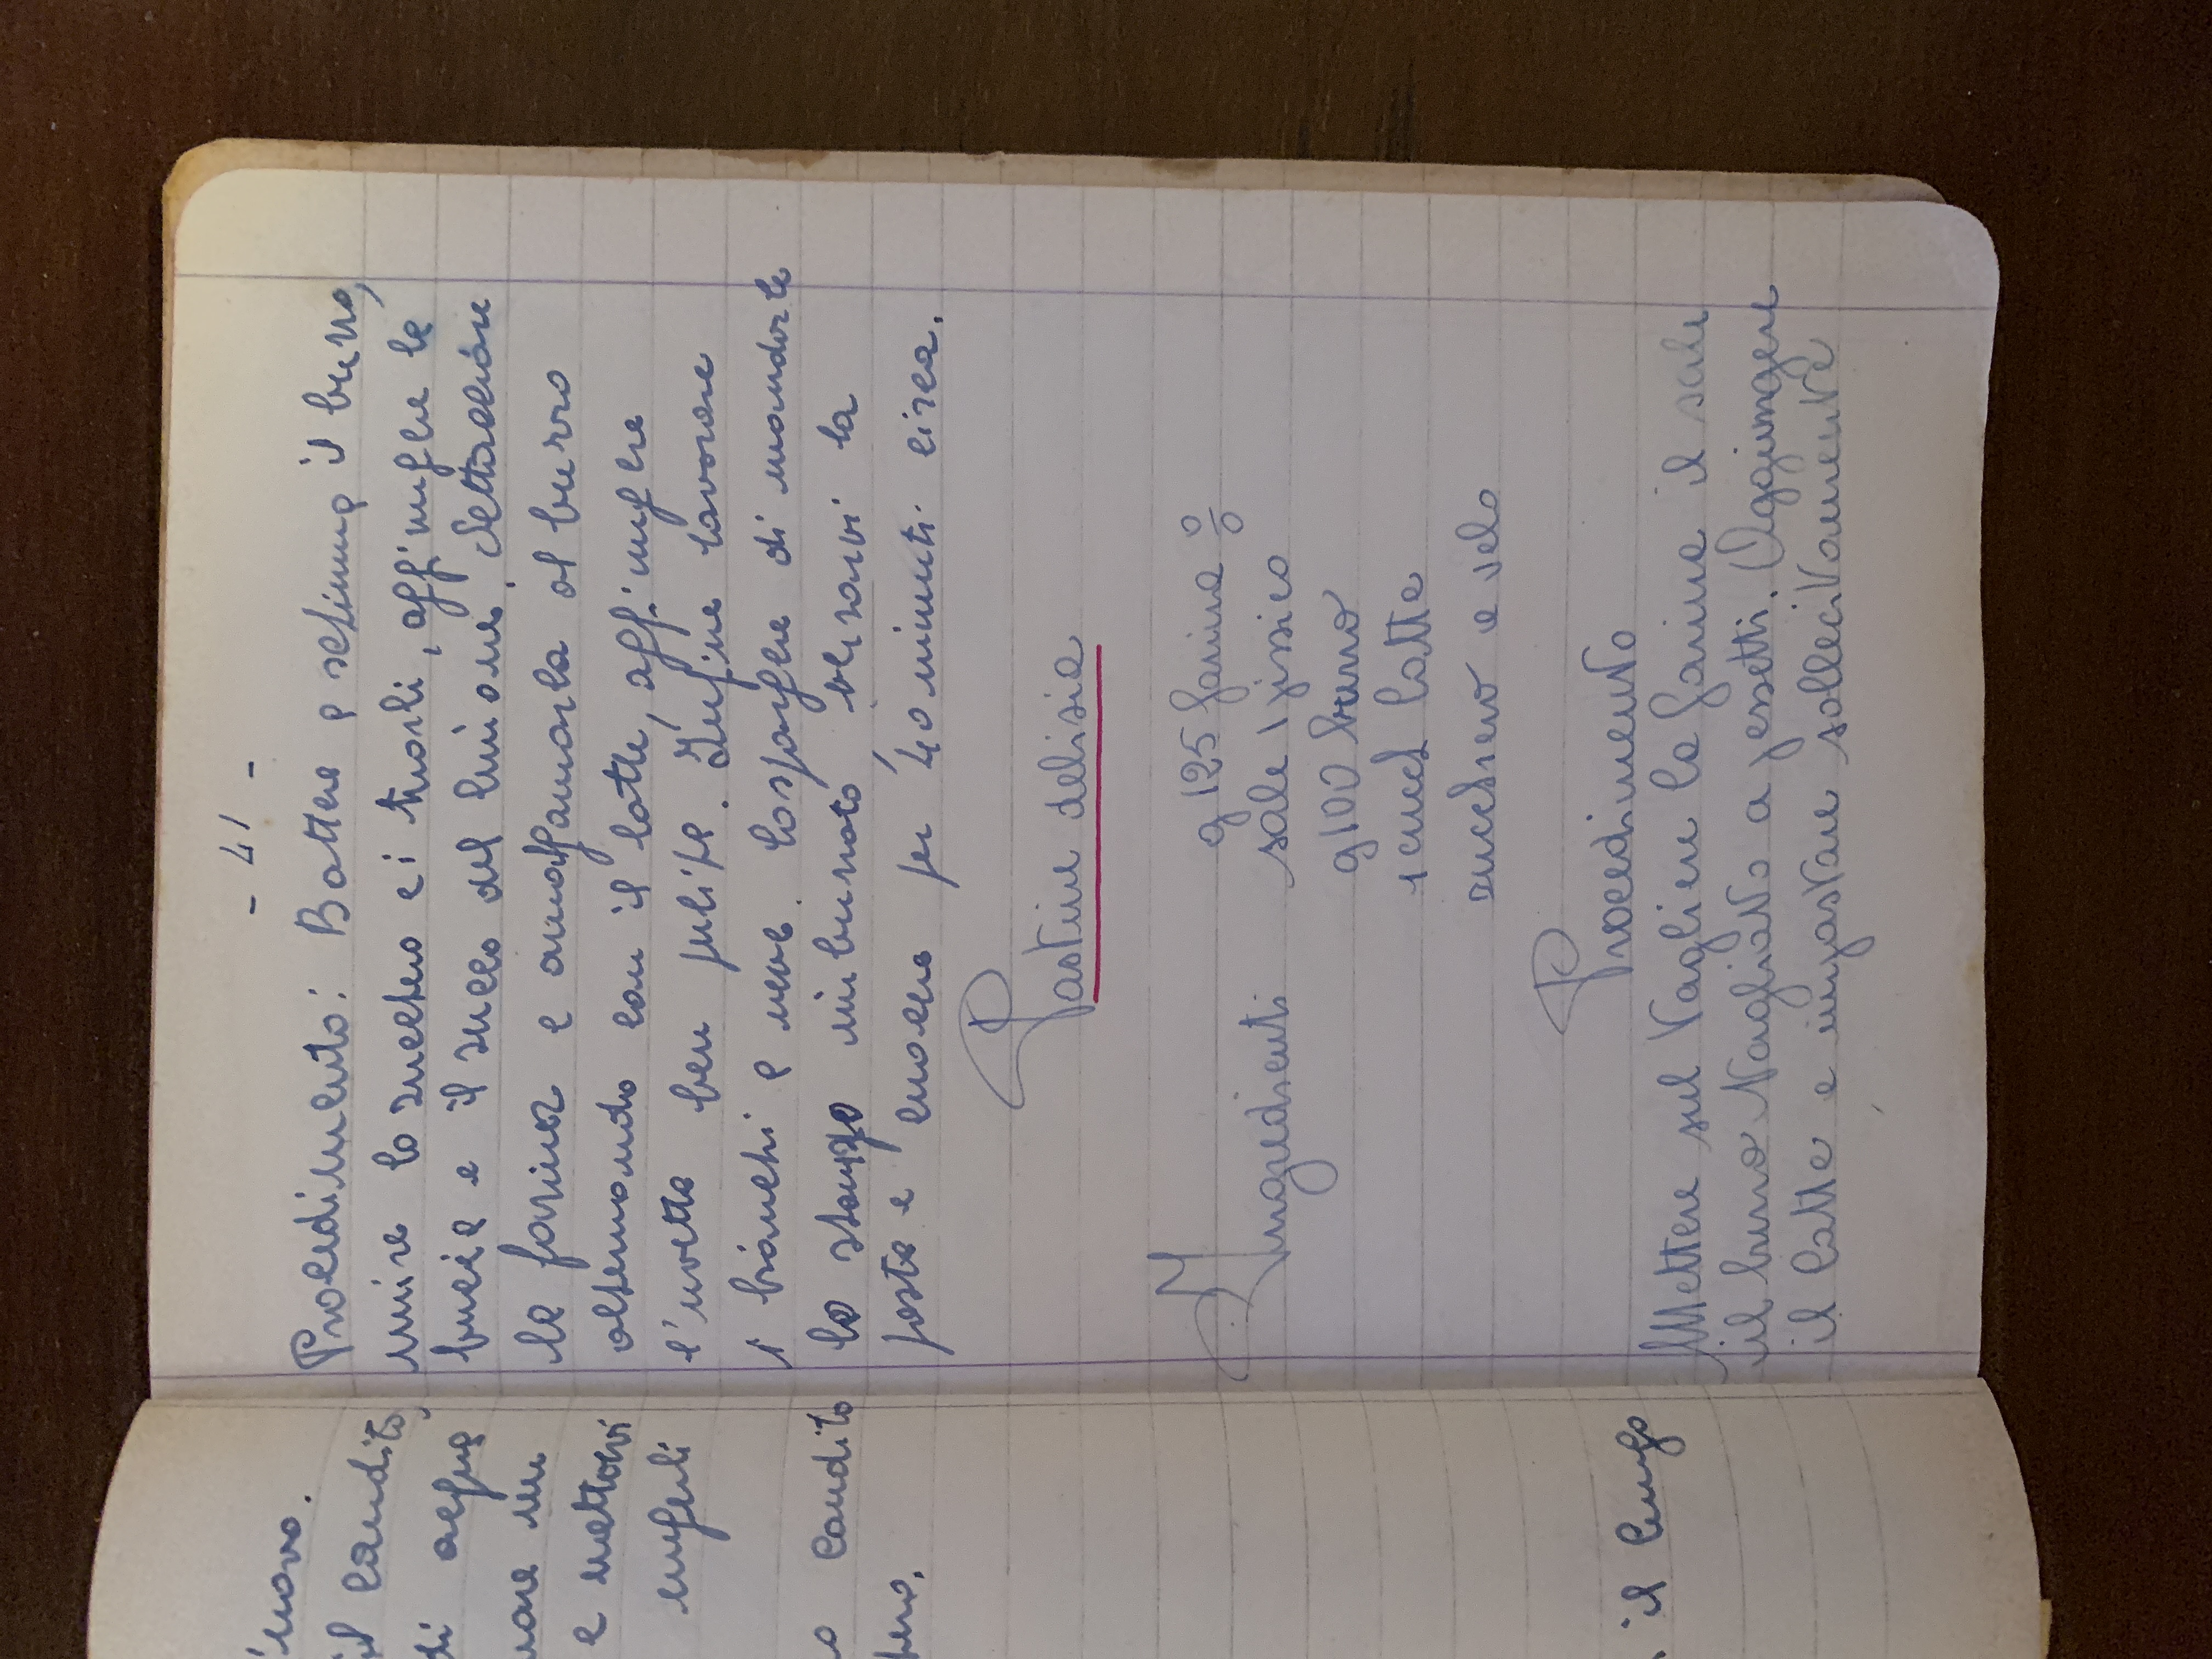 'uovo.
il candito,
di acqua
un
e mettervi
candito
il lungo
- 41 -
Procedimento: Battere a schiuma il burro,
unire lo zucchero e i tuorli, aggiungere la
buccia e il succo del limone. Settacciare
la farina e amalgamarla al burro
alternando con il latte, aggiungere
l'uvetta ben pulita. Infine lavorare
i bianchi a neve. Cospargere di mandorle
lo stampo imburrato, versarvi la
pasta e cuocere per 40 minuti circa.
Pastine delisia
g 125 farina 0/0
Ingredienti sale 1 pissico
g 100 burro
1 cucch latte
zucchero a velo
Procedimento
Mettere sul tagliere la farina il sale
il burro tagliato a pessetti. Aggiungere
il latte e impastare sollecitamente